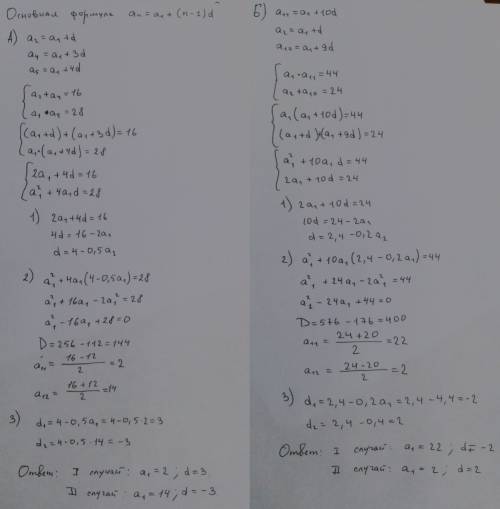 Основная формула aₙ = a₁ + (n-1)d
А) a₂ = a₁ + d
a₄ = a₁ + 3d
a₅ = a₁ + 4d
{ a₂ + a₄ = 16
a₁ • a₅ = 28
{ (a₁+d) + (a₁+3d) = 16
a₁·(a₁+4d) = 28
{ 2a₁ + 4d = 16
a₁² + 4a₁d = 28
1) 2a₁ + 4d = 16
4d = 16 - 2a₁
d = 4 - 0,5a₁
2) a₁² + 4a₁(4 - 0,5a₁) = 28
a₁² + 16a₁ - 2a₁² = 28
a₁² - 16a₁ + 28 = 0
D = 256 - 112 = 144
a₁₁ = (16-12)/2 = 2
a₁₂ = (16+12)/2 = 14
3) d₁ = 4 - 0,5a₁ = 4 - 0,5·2 = 3
d₂ = 4 - 0,5·14 = -3
Ответ: I случай: a₁ = 2; d = 3.
II случай: a₁ = 14; d = -3.
Б) a₁₁ = a₁ + 10d
a₂ = a₁ + d
a₁₀ = a₁ + 9d
{ a₁ · a₁₁ = 44
a₂ + a₁₀ = 24
{ a₁(a₁+10d) = 44
(a₁+d)+(a₁+9d) = 24
{ a₁² + 10a₁d = 44
2a₁ + 10d = 24
1) 2a₁ + 10d = 24
10d = 24 - 2a₁
d = 2,4 - 0,2a₁
2) a₁² + 10a₁(2,4 - 0,2a₁) = 44
a₁² + 24a₁ - 2a₁² = 44
a₁² - 24a₁ + 44 = 0
D = 576 - 176 = 400
a₁₁ = (24+20)/2 = 22
a₁₂ = (24-20)/2 = 2
3) d₁ = 2,4 - 0,2a₁ = 2,4 - 4,4 = -2
d₂ = 2,4 - 0,4 = 2
Ответ: I случай: a₁ = 22; d = -2
II случай: a₁ = 2; d = 2